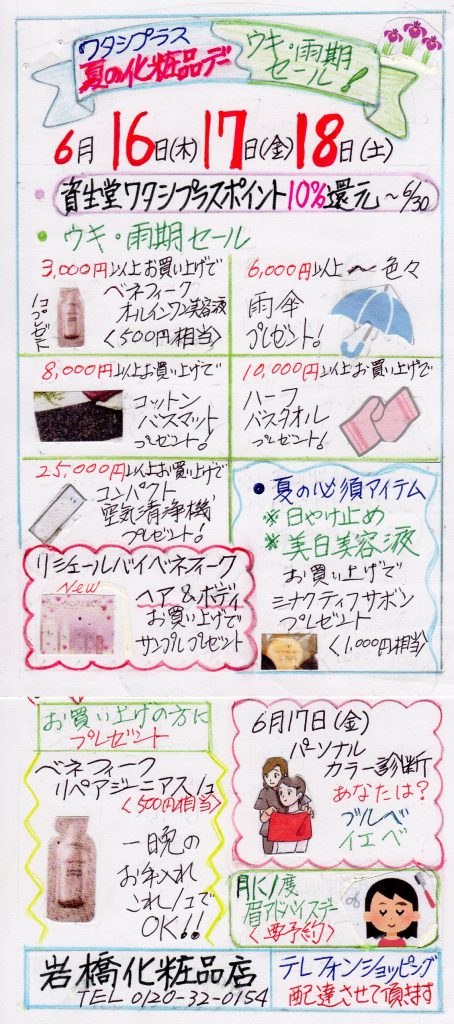 ワタシプラス
夏の化粧品デー
ウキ・雨期
セール!
6月16日(木)17日(金)18日(土)
資生堂ワタシプラスポイント10%還元〜6/30
・ウキ・雨期セール
3,000円以上お買い上げで
ベネフィーク
オールインワン美容液
<500円相当>
1コプレゼント
6,000円以上〜色々
雨傘
プレゼント!
8,000円以上お買い上げで
コットン
バスマット
プレゼント!
10,000円以上お買い上げで
ハーフ
バスタオル
プレゼント!
25,000円以上お買い上げで
コンパクト
空気清浄機
プレゼント!
・夏の必須アイテム
※日やけ止め
※美白美容液
お買い上げで
ミナクティフサボン
プレゼント
<1,000円相当>
リシェールバイベネフィーク
New
ヘア&ボディ
お買い上げで
サンプルプレゼント
お買い上げの方に
プレゼント
ベネフィーク
リペアジーニアス1コ
<500円相当>
一晩の
お手入れ
これ1コで
OK!!
6月17日(金)
パーソナル
カラー診断
あなたは?
ブルベ
イエベ
月に1度
眉アドバイスデー
<要予約>
岩橋化粧品店
TEL 0120-32-0154
テレフォンショッピング
配達させて頂きます